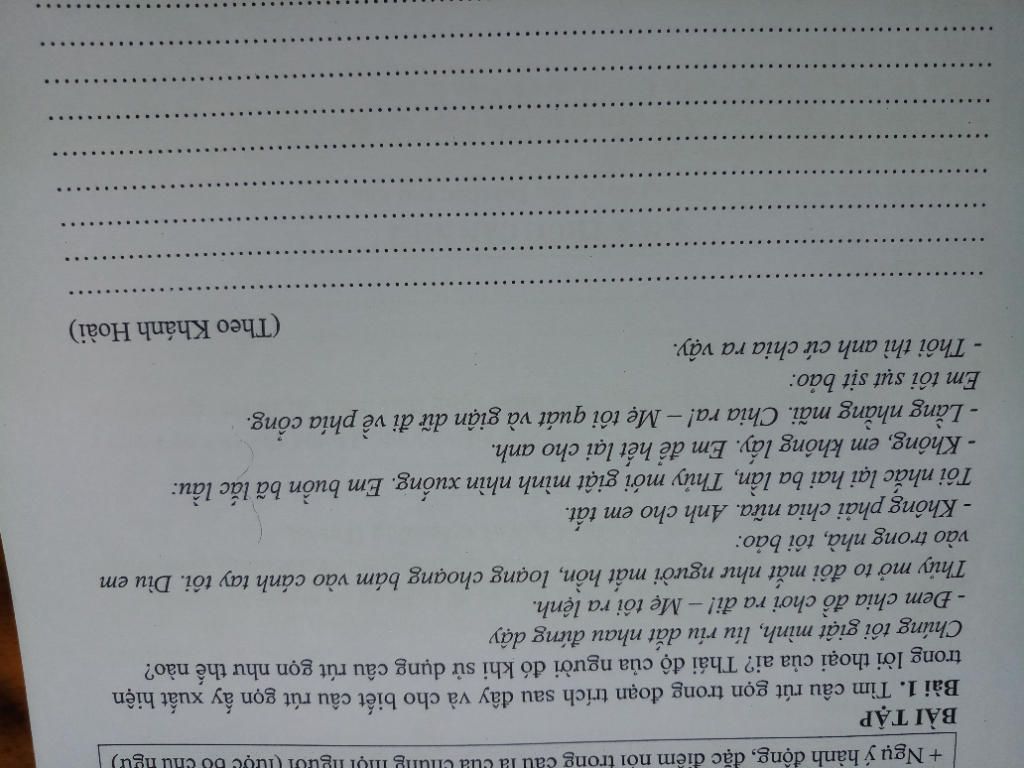 + Ngụ ý hành động, đặc điểm nói trong câu là của chung mọi người (lược bỏ chủ ngữ)
BÀI TẬP
Bài 1. Tìm câu rút gọn trong đoạn trích sau đây và cho biết câu rút gọn ấy xuất hiện
trong lời thoại của ai? Thái độ của người đó khi sử dụng câu rút gọn như thế nào?
Chúng tôi giật mình, líu ríu dắt nhau đứng dậy
- Đem chia đồ chơi ra đi! – Mẹ tôi ra lệnh.
Thủy mở to đôi mắt như người mất hồn, loạng choạng bám vào cánh tay tôi. Dìu em
vào trong nhà, tôi bảo:
- Không phải chia nữa. Anh cho em tất.
Tôi nhắc lại hai ba lần, Thủy mới giật mình nhìn xuống. Em buồn bã lắc lầu:
- Không, em không lấy. Em để hết lại cho anh.
- Lằng nhằng mãi. Chia ra! – Mẹ tôi quát và giận dữ đi về phía cổng.
Em tôi sụt sịt bảo:
- Thôi thì anh cứ chia ra vậy.
(Theo Khánh Hoài)